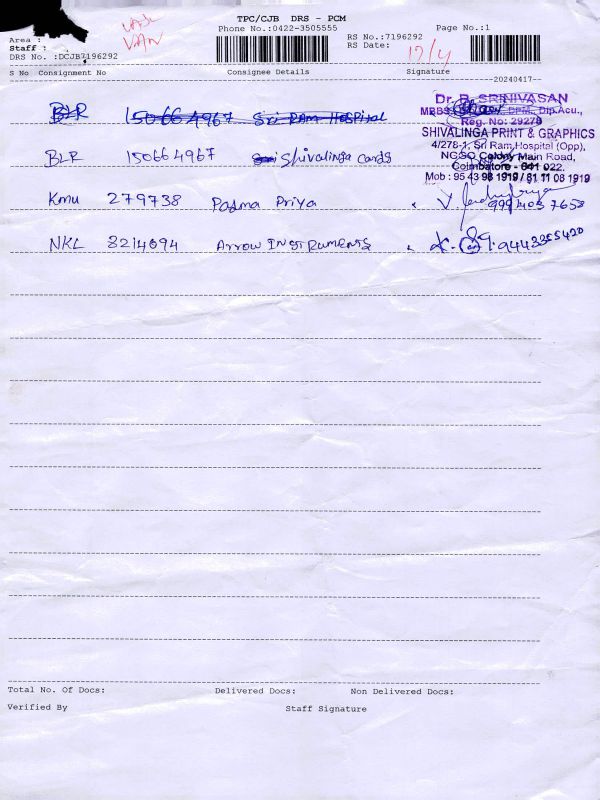 TPC/CJB DRS - PCM
Phone No.:0422-3505555
Page No.:1
Area :
VAN
RS No.:7196292
Staff :
RS Date: 17/4
DRS No. :DCJB7196292
S No Consignment No Consignee Details Signature
20240417
BLR 150664967 Sri RAM HOSPital
Dr. R. SRINIVASAN
MBBS DPM, Dip.Acu.,
Reg. No: 29279
SHIVALINGA PRINT & GRAPHICS
4/278-1, Sri Ram Hospital (Opp),
NGGO Colony Main Road,
Coimbatore - 641 022.
Mob : 95 43 98 1919 / 81 11 08 1919
BLR 150664967 Shivalinga cards
Kmu 279738 Padma Priya
NKL 3214094 Arrow INSTRUMENTS
9443355420
Total No. Of Docs: Delivered Docs: Non Delivered Docs:
Verified By Staff Signature